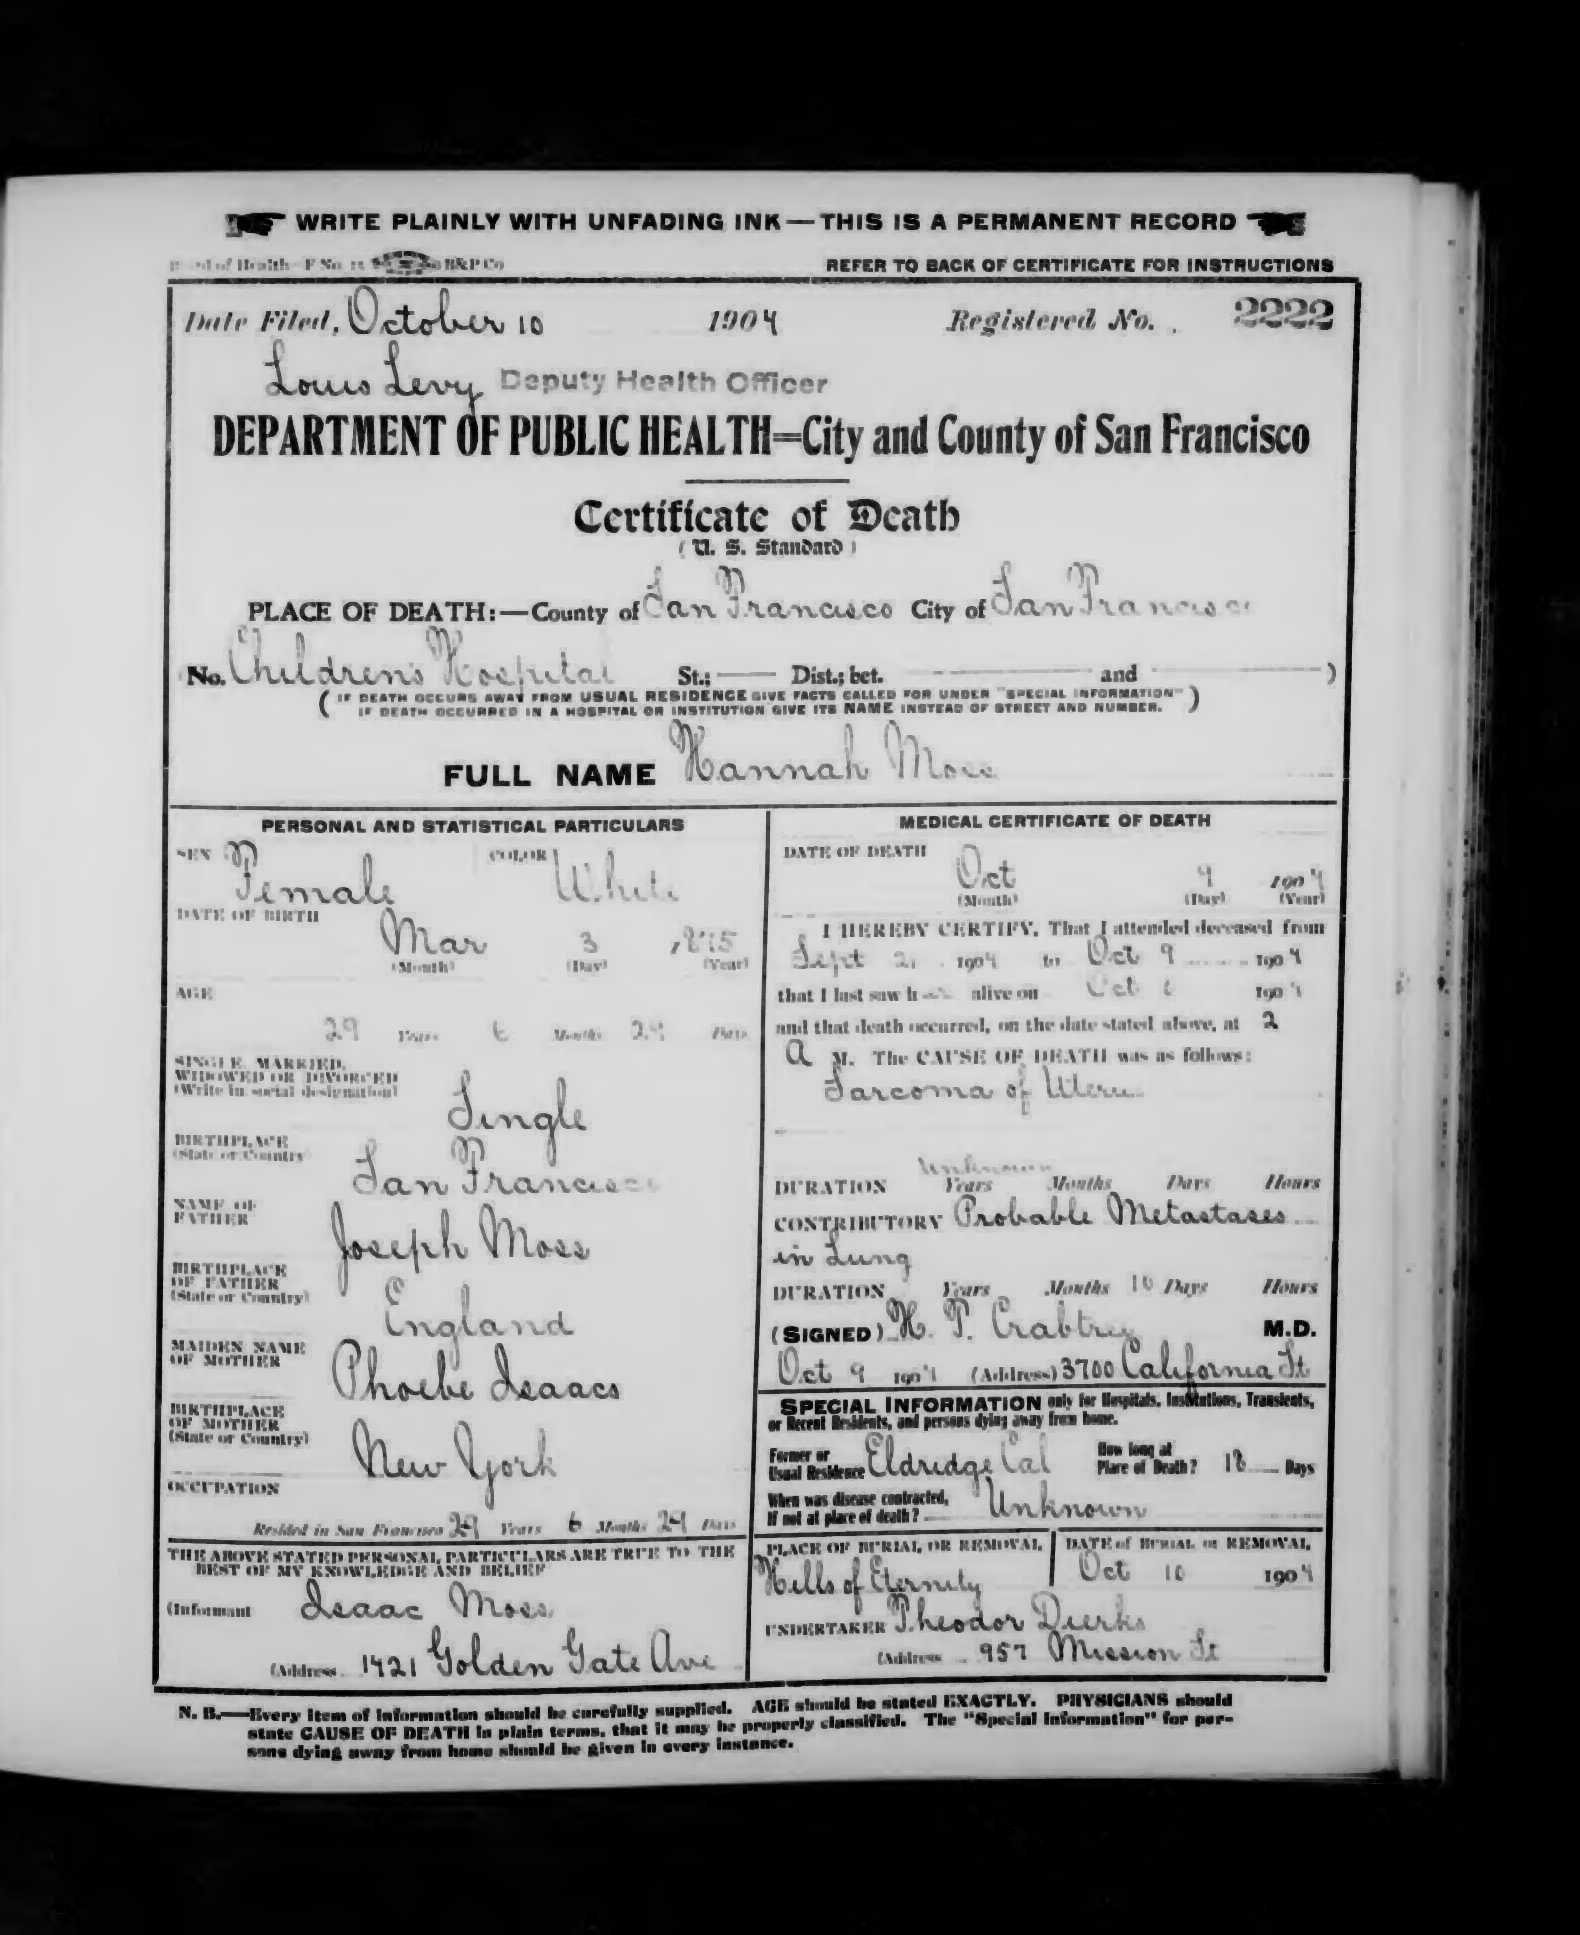 WRITE PLAINLY WITH UNFADING INK — THIS IS A PERMANENT RECORD
Board of Health F No. B&P Co
REFER TO BACK OF CERTIFICATE FOR INSTRUCTIONS
Date Filed, October 10 1904 Registered No. 2222
Louis Levy Deputy Health Officer
DEPARTMENT OF PUBLIC HEALTH=City and County of San Francisco
Certificate of Death
( U. S. Standard )
PLACE OF DEATH:—County of San Francisco City of San Francisco
No. Children's Hospital St.; —— Dist.; bet. —— and —— )
( IF DEATH OCCURS AWAY FROM USUAL RESIDENCE GIVE FACTS CALLED FOR UNDER "SPECIAL INFORMATION"
IF DEATH OCCURRED IN A HOSPITAL OR INSTITUTION GIVE ITS NAME INSTEAD OF STREET AND NUMBER. )
FULL NAME Hannah Moss
PERSONAL AND STATISTICAL PARTICULARS
SEX Female COLOR White
DATE OF BIRTH
Mar 3 1875
(Month) (Day) (Year)
AGE
29 Years 6 Months Days
SINGLE, MARRIED,
WIDOWED OR DIVORCED
(Write in social designation)
Single
BIRTHPLACE
(State or Country)
San Francisco
NAME OF
FATHER
Joseph Moss
BIRTHPLACE
OF FATHER
(State or Country)
England
MAIDEN NAME
OF MOTHER
Phoebe Isaacs
BIRTHPLACE
OF MOTHER
(State or Country)
New York
OCCUPATION
Resided in San Francisco 29 Years 6 Months Days
THE ABOVE STATED PERSONAL PARTICULARS ARE TRUE TO THE
BEST OF MY KNOWLEDGE AND BELIEF
(Informant Isaac Moss
(Address 1421 Golden Gate Ave
MEDICAL CERTIFICATE OF DEATH
DATE OF DEATH
Oct 9 1904
(Month) (Day) (Year)
I HEREBY CERTIFY, That I attended deceased from
Sept 1904 to Oct 9 1904
that I last saw h alive on Oct 1904
and that death occurred, on the date stated above, at 2
A M. The CAUSE OF DEATH was as follows:
Sarcoma of Uterus
Unknown
DURATION Years Months Days Hours
CONTRIBUTORY Probable Metastases
in Lung
DURATION Years Months 10 Days Hours
(SIGNED) H. P. Crabtree M.D.
Oct 9 1904 (Address) 3700 California St
SPECIAL INFORMATION only for Hospitals, Institutions, Transients,
or Recent Residents, and persons dying away from home.
Former or
Usual Residence Eldridge Cal
How long at
Place of Death? 18 Days
When was disease contracted,
If not at place of death? Unknown
PLACE OF BURIAL OR REMOVAL
Hills of Eternity
DATE of BURIAL or REMOVAL
Oct 10 1904
UNDERTAKER Theodor Dierks
(Address 957 Mission St
N. B.—Every item of information should be carefully supplied. AGE should be stated EXACTLY. PHYSICIANS should
state CAUSE OF DEATH in plain terms, that it may be properly classified. The "Special Information" for per-
sons dying away from home should be given in every instance.